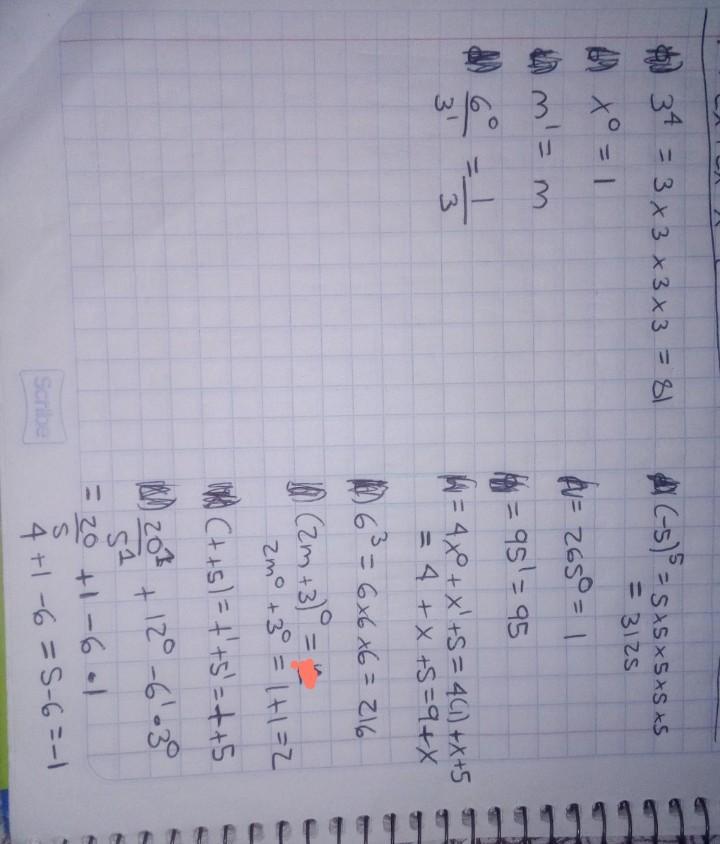 3⁴ = 3 x 3 x 3 x 3 = 81
x⁰ = 1
m¹ = m
6⁰/3¹ = 1/3
(-5)⁵ = 5x5x5x5x5
= 3125
= 265⁰ = 1
= 95¹ = 95
= 4x⁰ + x¹ + 5 = 4(1) + x + 5
= 4 + x + 5 = 9 + x
6³ = 6x6x6 = 216
(2m + 3)⁰ =
2m⁰ + 3⁰ = 1 + 1 = 2
(t + 5)¹ = t¹ + 5¹ = t + 5
20¹/5¹ + 12⁰ - 6¹ • 3⁰
= 20/5 + 1 - 6 • 1
4 + 1 - 6 = 5 - 6 = -1
Scribe